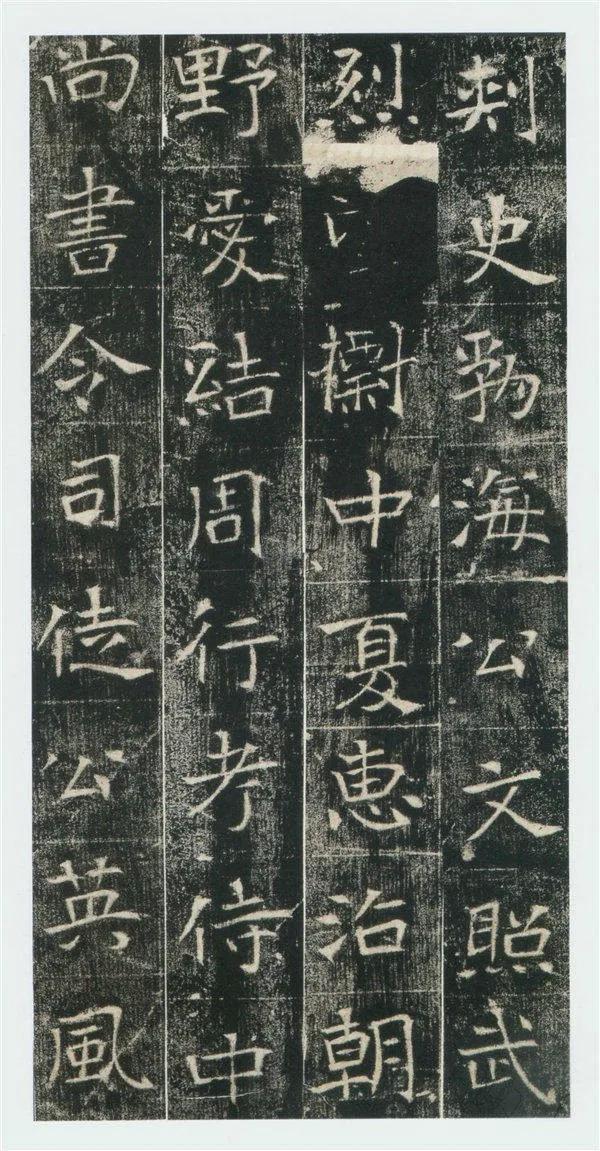 刺史勃海公文照武
烈中夏惠洽朝
野愛結周行考侍中
尚書令司徒公英風